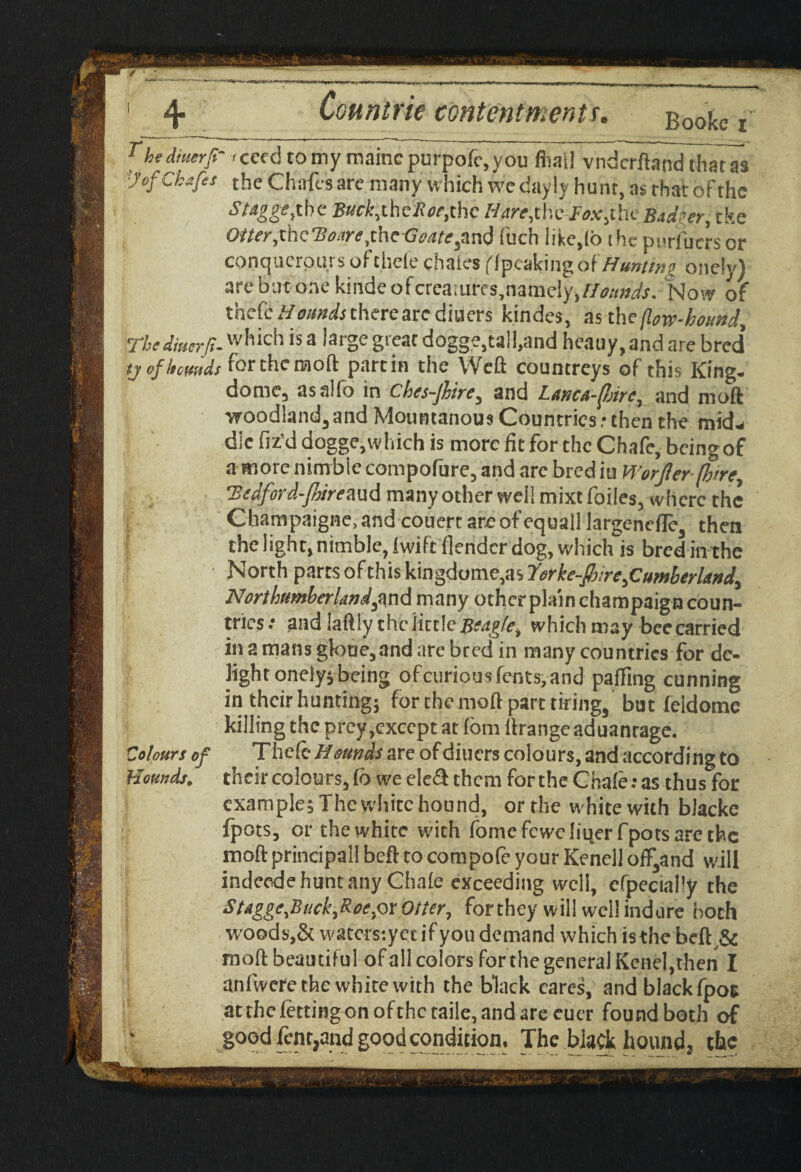 4 Countrie contentments. Booke 1
The diuersi-
ty of Chases
ceed to my maine purpose, you shall vnderstand that as
the Chases are many which we dayly hunt, as that of the
Stagge, the Buck, the Roe, the Hare, the Fox, the Badger, the
Otter, the Boare, the Goate, and such like, so the pursuers or
conquerours of these chases (speaking of Hunting onely)
are but one kinde of creatures, namely, Hounds. Now of
these Hounds there are diuers kindes, as the slow-hound,
The diuersi-
ty of hounds
which is a large great dogge, tall, and heauy, and are bred
for the most part in the West countreys of this King-
dome, as also in Ches-shire, and Lanca-shire, and most
woodland, and Mountanous Countries: then the mid-
dle siz'd dogge, which is more fit for the Chase, being of
a more nimble composure, and are bred in Worster-shire,
Bedford-shire and many other well mixt soiles, where the
Champaigne, and couert are of equall largenesse, then
the light, nimble, swift slender dog, which is bred in the
North parts of this kingdome, as Yorke-shire, Cumberland,
Northumberland, and many other plain champaign coun-
tries: and lastly the little Beagle, which may bee carried
in a mans gloue, and are bred in many countries for de-
light onely; being of curious sents, and passing cunning
in their hunting; for the most part tiring, but seldome
killing the prey, except at som strange aduantage.
Colours of
Hounds.
These Hounds are of diuers colours, and according to
their colours, so we elect them for the Chase: as thus for
example; The white hound, or the white with blacke
spots, or the white with some fewe liuer spots are the
most principall best to compose your Kenell off, and will
indeede hunt any Chase exceeding well, especially the
Stagge, Buck, Roe, or Otter, for they will well indure both
woods, & waters: yet if you demand which is the best, &
most beautiful of all colors for the general Kenel, then I
answere the white with the black eares, and black spot
at the setting on of the taile, and are euer found both of
good sent, and good condition. The black hound, the